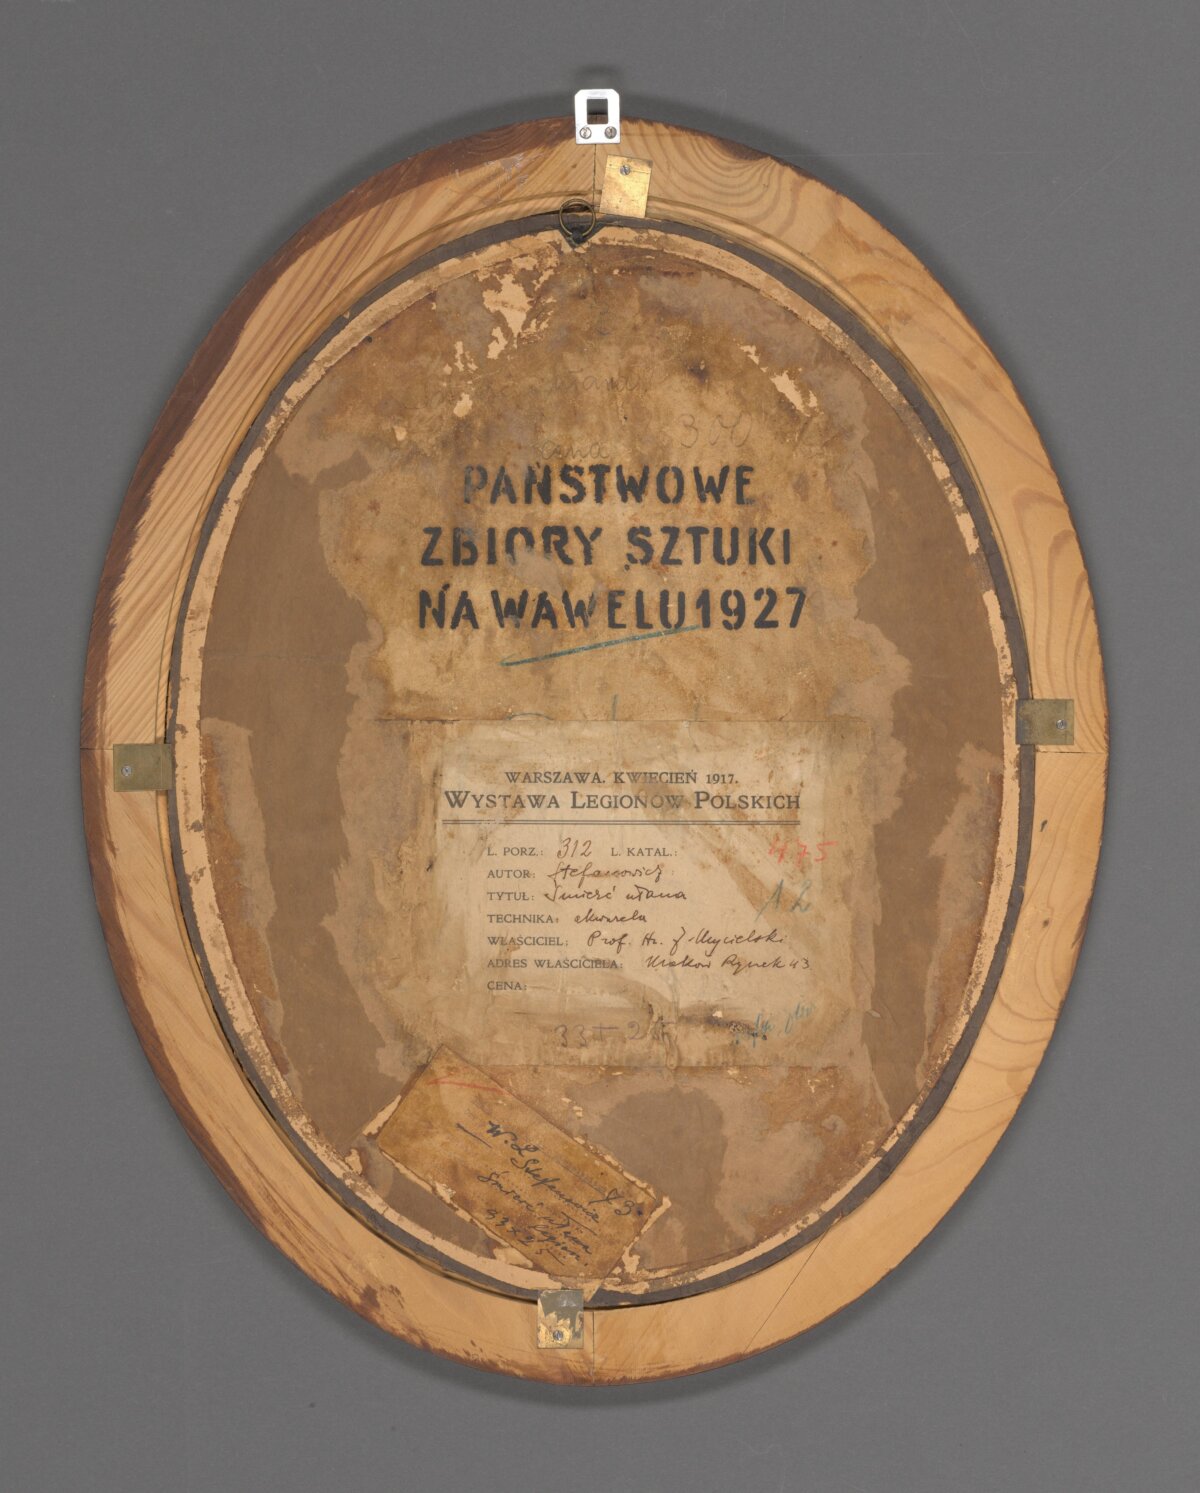 cena 300
PAŃSTWOWE
ZBIORY SZTUKI
NA WAWELU 1927
WARSZAWA. KWIECIEŃ 1917.
WYSTAWA LEGIONÓW POLSKICH
L. PORZ.: 312 L. KATAL.:
475
AUTOR: Stefanowicz
TYTUŁ: Śmierć ułana
12
TECHNIKA: akwarela
WŁAŚCICIEL: Prof. Hr. J. Mycielski
ADRES WŁAŚCICIELA: Kraków Rynek 43
CENA:
33 + 25
W. L. Stefanowicz
Śmierć ułana
Legion.
33 x 25